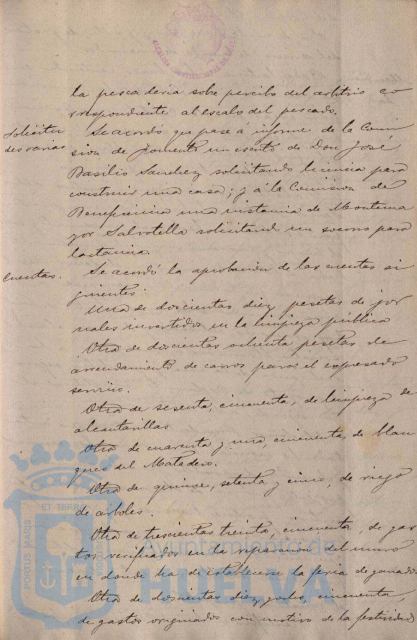 la pescaderia sobre percibo del arbitrio co
rrespondiente al escalo del pescado.
Solicitu
des varias
Se acordó que pase á informe de la Comi
sion de fomento un escrito de Don José
Basilio Sanchez solicitando licencia para
construir una casa; y á la Comision de
Beneficencia una instancia de
por solicitando un socorro para
lactancia.
Cuentas.
Se acordó la aprobacion de las cuentas si
guientes:
Una de doscientas diez pesetas de jor
nales invertidos en la limpieza publica
Otra de doscientas ochenta pesetas de
arrendamiento de carros para el expresado
servicio.
Otra de sesenta, cincuenta, de limpieza de
alcantarillas
Otra de cuarenta y una cincuenta, de blan
queo del Matadero.
Otra de quince, setenta y cinco, de riego
de arboles.
Otra de trescientas treinta, cincuenta, de gas
tos verificados en la reparacion del muro
en donde ha de establecerse la feria de ganados
Otra de doscientas diez y ocho, cincuenta,
de gastos originados con motivo de la festividad
PORTUS MARIS
ET TERRÆ
Ayuntamiento de
HUELVA